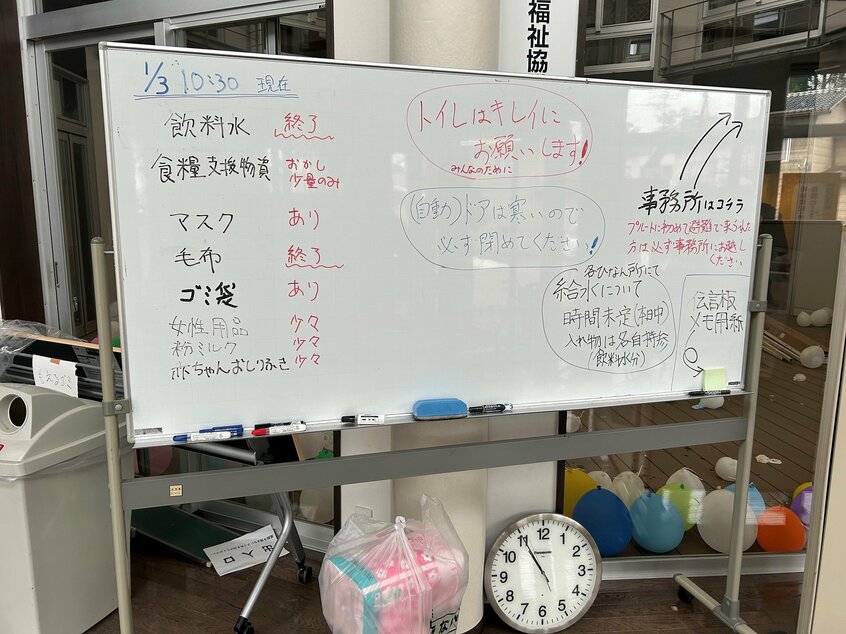 福祉協
1/3 10:30 現在
飲料水 終了
食糧支援物資 おかし
少量のみ
マスク あり
毛布 終了
ゴミ袋 あり
女性用品 少々
粉ミルク 少々
赤ちゃんおしりふき 少々
トイレはキレイに
お願いします!
みんなのために
(自動)ドアは寒いので
必ず閉めてください!
事務所はコチラ
プルートに初めて避難で来られた
方は必ず事務所にお越し
ください
各ひなん所にて
給水について
時間未定(相中)
入れ物は各自持参
(飲料水分)
伝言板
メモ用紙
もえるゴミ
出入口
Panasonic
12
1
2
3
4
5
6
7
8
9
10
11